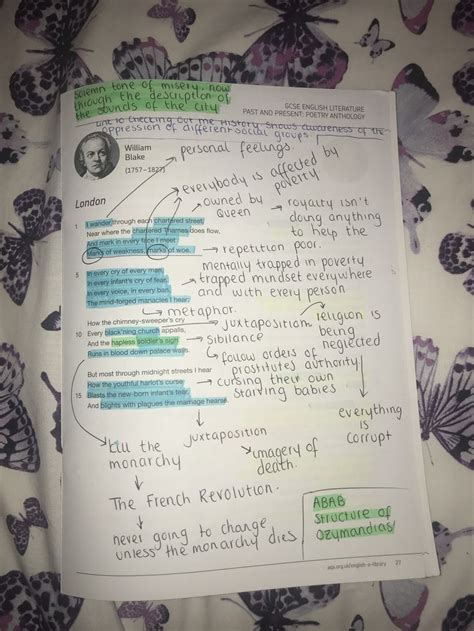 solemn tone of misery now
through the description of
the sounds of the city
GCSE ENGLISH LITERATURE
PAST AND PRESENT: POETRY ANTHOLOGY
checking out the history shows awareness of the
oppression of different social groups
William
Blake
(1757–1827)
personal feelings.
everybody is affected by
poverty
London
owned by
Queen
royalty isn't
doing anything
to help the
poor.
1 I wander through each chartered street,
Near where the chartered Thames does flow,
And mark in every face I meet
Marks of weakness, marks of woe.
repetition
mentally trapped in poverty
trapped mindset everywhere
and with every person
5 In every cry of every man,
In every infant's cry of fear,
In every voice, in every ban,
The mind-forged manacles I hear:
metaphor.
How the chimney-sweeper's cry
10 Every black'ning church appals,
And the hapless soldier's sigh
Runs in blood down palace walls.
juxtaposition
religion is
being
neglected
Sibilance
follow orders of
authority
But most through midnight streets I hear
How the youthful harlot's curse
15 Blasts the new-born infant's tear,
And blights with plagues the marriage hearse.
prostitutes
cursing their own
starving babies
everything
is
corrupt
juxtaposition
imagery of
death.
kill the
monarchy
The French Revolution.
never going to change
unless the monarchy dies
ABAB
structure of
Ozymandias
aqa.org.uk/english-e-library 27